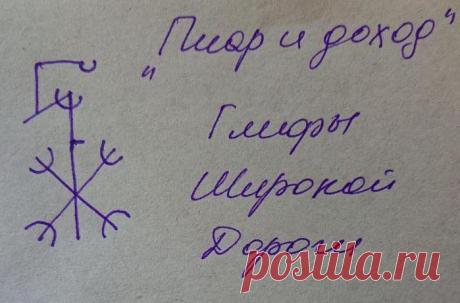 "Пиар и доход"
Глифы
Широкой
Дороги
postila.ru